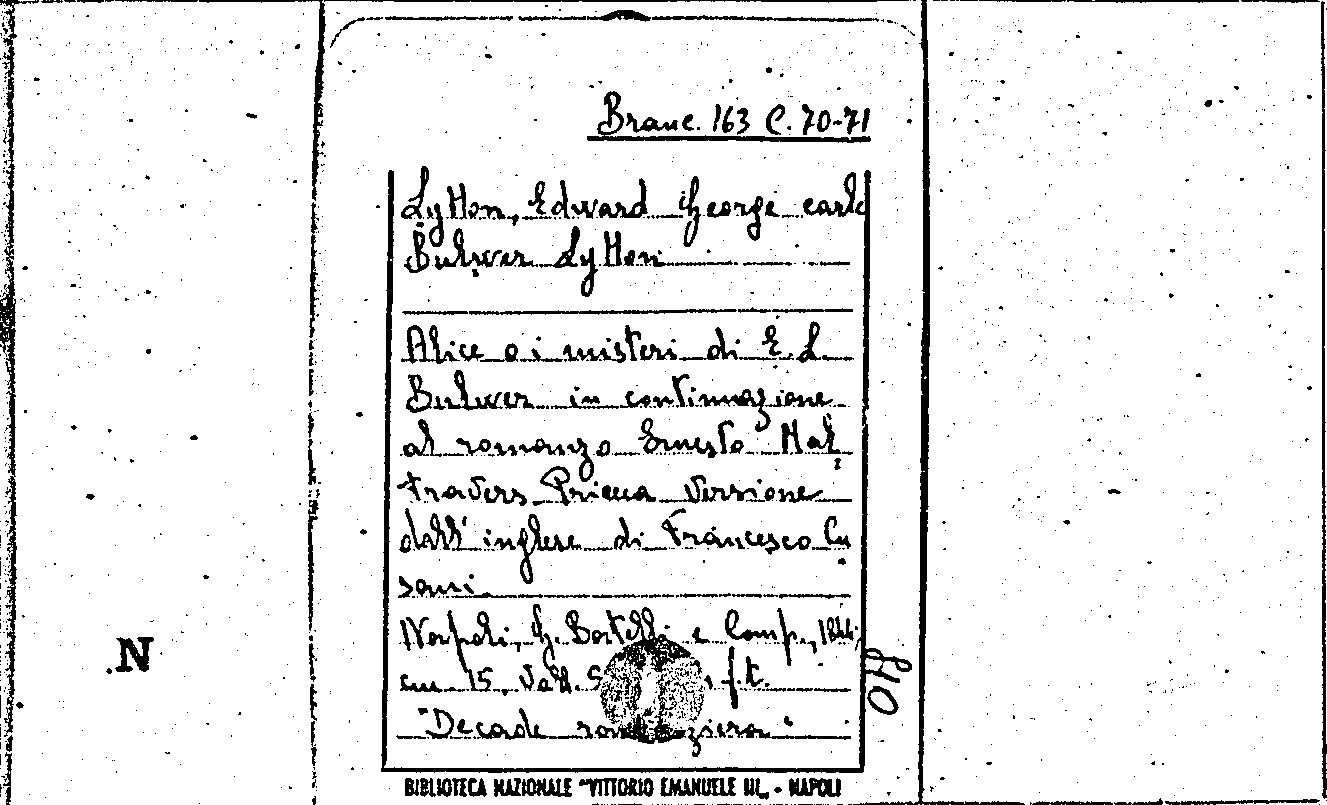 Branc. 163 C. 70-71
Lytton, Edward George earle
Bulwer Lytton
Alice o i misteri di E. L.
Bulwer in continuazione
al romanzo Ernesto Mal
travers Prima versione
dall'inglese di Francesco Cu
sani.
Napoli, G. Bortelli e Comp., 1844
cm 15. Voll. f.t.
"Decade romanziera"
840
N
BIBLIOTECA NAZIONALE "VITTORIO EMANUELE III„ - NAPOLI